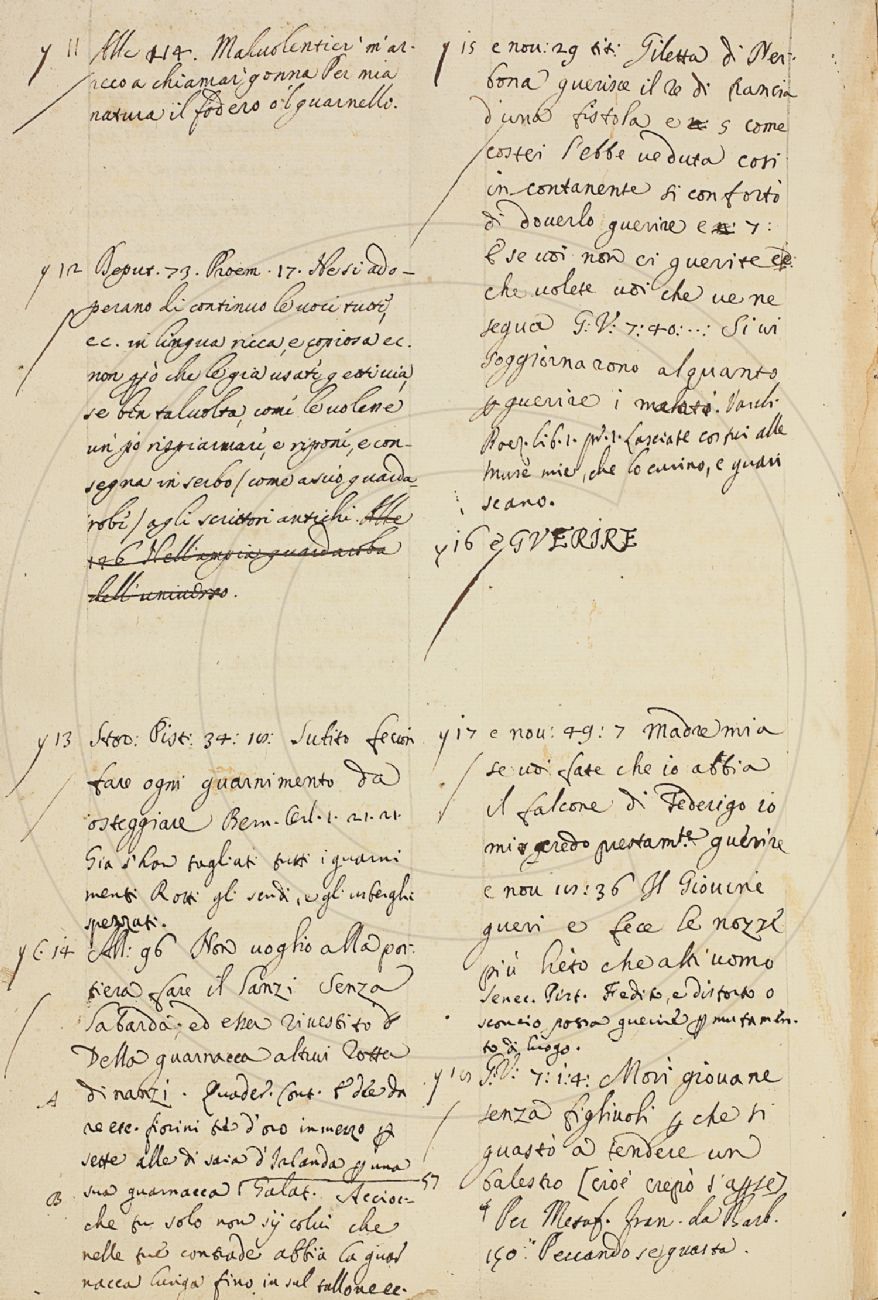 y 11 Alle. 114. Maluolentier' m'ar-
reco a chiamar' gonna Per mia
natura il fodero o'l guarnello.
y 12 Deput. 73. Proem. 17. Ne si ado-
perano di continuo le uoci tutte,
ec. in lingua ricca, e copiosa ec.
non però che le già usate getti uia,
se ben taluolta, come le uolesse
un' pò risparmiare, e riporre, e con-
segna in serbo (come a suoi guarda-
robi) agli scrittori antichi. Alle
126 Nell'ampia guardaroba
dell'uniuerso.
y 13 Stor: Pist: 34: Subito fecion
fare ogni guarnimento da
osteggiare Bern. Orl. 1. 21. 21.
Gia s'han tagliati tutti i guarni
menti Rotti gli scudi, e gli usberghi
spezzati.
y 14 All: 96 Non uoglio alla por-
tiera fare il Lanzi Senza
labarda; ed esser riuestito
Della guarnacca altrui rotta
dinanzi. Quader. Cont. E dee da
re etc. fiorini d'oro in mezzo p
sette alle di saia d'Irlanda p una
sua guarnacca Galat. Accioc-
che tu solo non sij colui che
nelle tue contrade abbia la guar
nacca lunga fino in sul tallone ec.
A
B
57
y 15 e nou: 29 tit: Giletta di Ner-
bona guerisce il re di Francia
d'una fistola e n: 5 come
costei l'ebbe ueduta così
incontanente si confortò
di douerlo guerire e n: 7:
E se uoi non ci guerite
che uolete uoi che ue ne
segua G: V: 7: 40: Si ui
soggiornarono alquanto
p guerire i malati. Varch.
Boez. lib. 1. pr. 1. Lasciate costui alle
Muse mie, che lo curino, e guari
scano.
y 16 e GVERIRE
y 17 e nou: 49: 7 Madre mia
se uoi fate che io abbia
il falcone di Federigo io
mi credo prestam.te guerire
e nou 36 Il Giouine
guerì e fece le nozze
più lieto che altr'uomo
Senec. Pist. Fedito, e distorto o
sconcio possa guerire p mutamen-
to di luogo.
y 18 G: V: 7: 1:4: Morì giouane
senza figliuoli p che si
guastò a tendere un
balestro [cioè crepò s'aperse]
Per Metaf. Fran. da Barb.
190. Peccando se guasta.